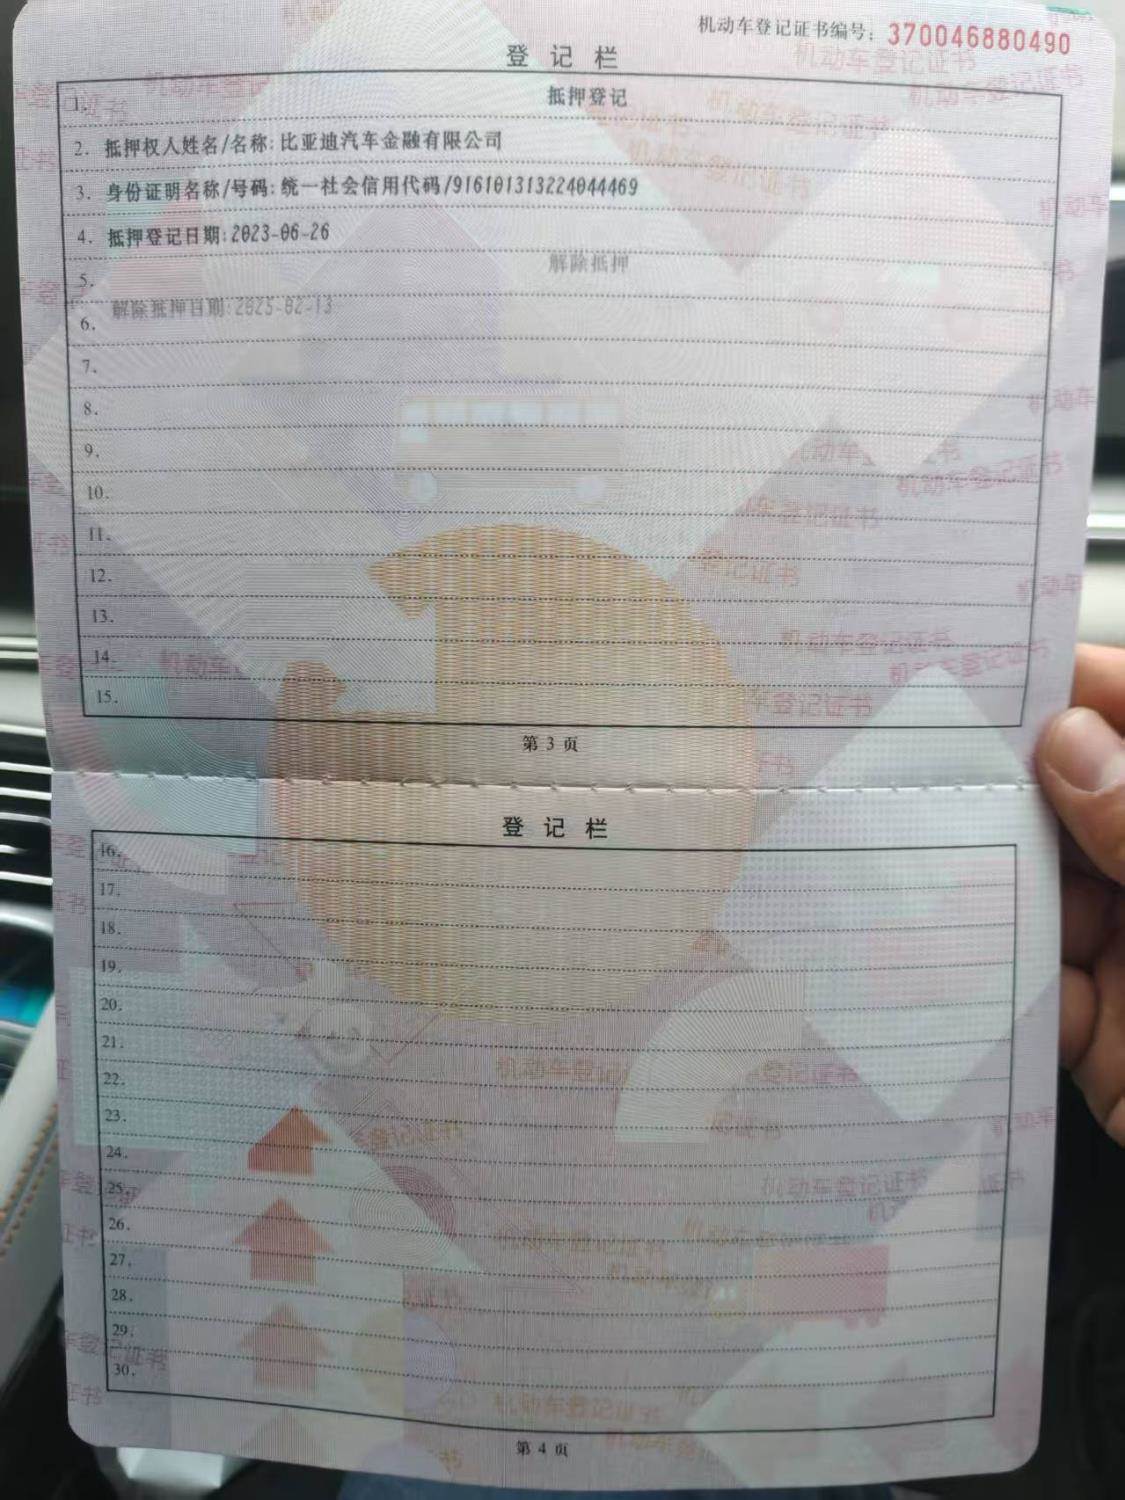 机动车登记证书编号：370046880490
登 记 栏
1. 抵押登记
2. 抵押权人姓名/名称:比亚迪汽车金融有限公司
3. 身份证明名称/号码:统一社会信用代码/916101313224044469
4. 抵押登记日期:2023-06-26
5. 解除抵押
6. 解除抵押日期:2025-02-13
7.
8.
9.
10.
11.
12.
13.
14.
15.
第 3 页
登 记 栏
16.
17.
18.
19.
20.
21.
22.
23.
24.
25.
26.
27.
28.
29.
30.
第 4 页